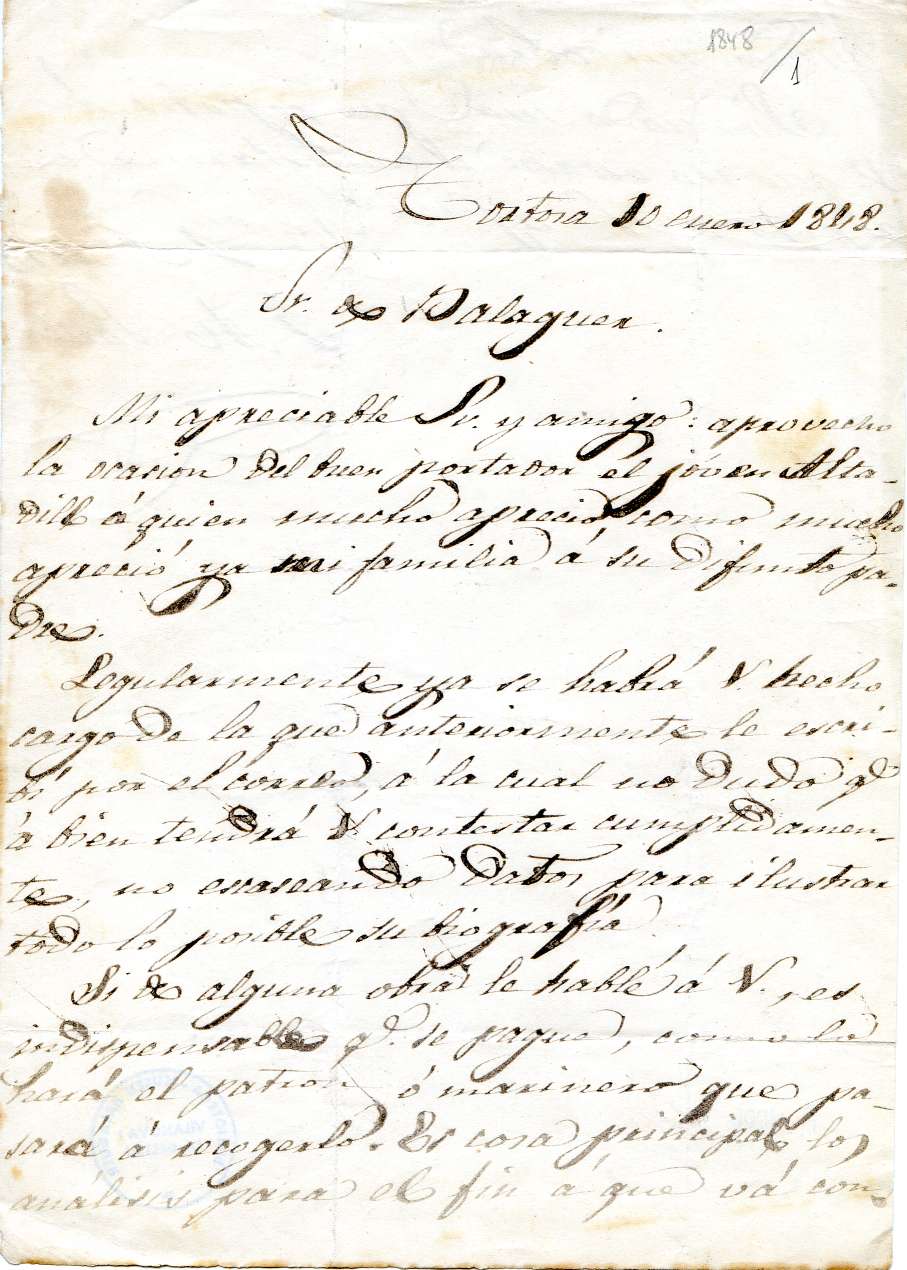 1848 / 1
Tortosa 10 enero 1848.
Sr. de Balaguer.
Mi apreciable Sr. y amigo: aprovecho
la ocasion del buen portador el jóven Alta-
dill á quien mucho aprecio, como mucho
apreció ya mi familia á su difunto pa-
dre.
Regularmente ya se habrá V. hecho
cargo de la que anteriormente le escri-
bí por el correo, á la cual no dudo qe
á bien tendrá V. contestar cumplidamen-
te, no escaseando datos para ilustrar
todo lo posible su biografía
Si de alguna obra le hablé á V., es
indispensable qe. se pague, como lo
hará el patron ó marinero que pa-
sará á recogerlo. Es cosa principal los
análisis para el fin á que vá con-